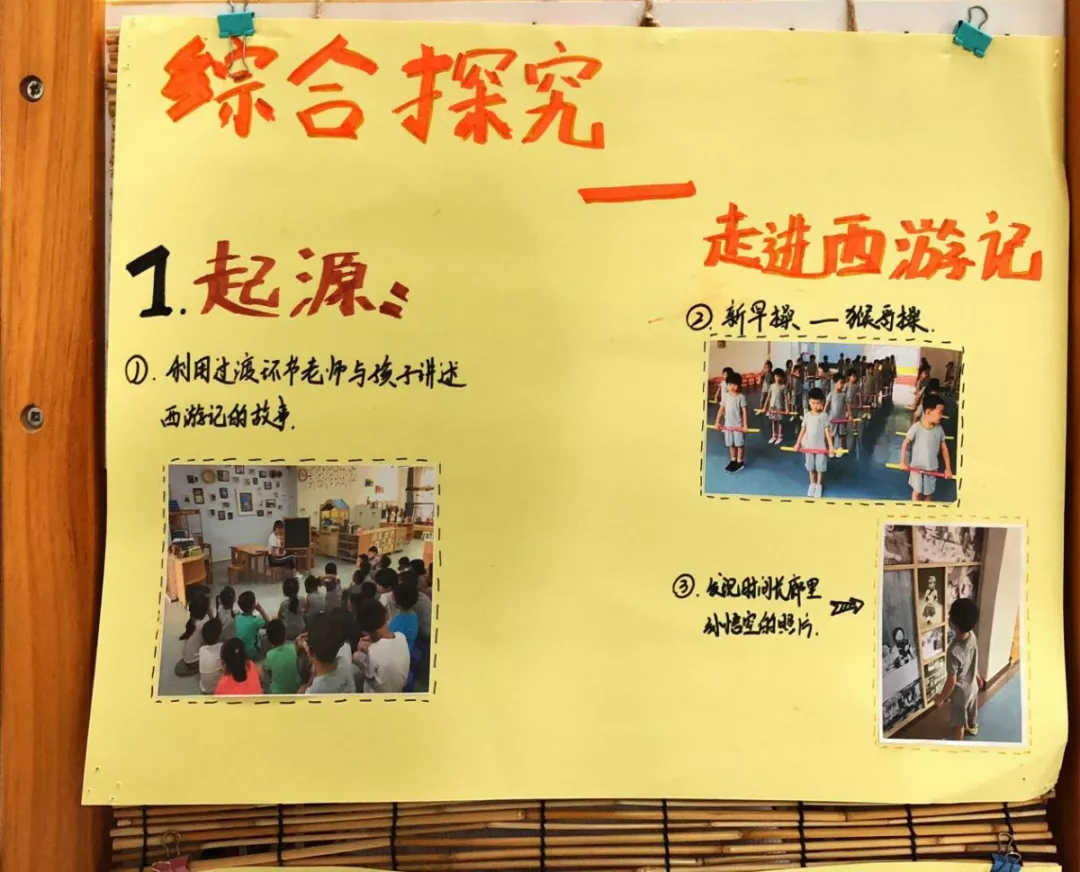 综合探究
—
走进西游记
1.起源:
①.利用过渡环节老师与孩子讲述
西游记的故事.
②.新早操—猴哥操.
③.发现时间长廊里
孙悟空的照片.